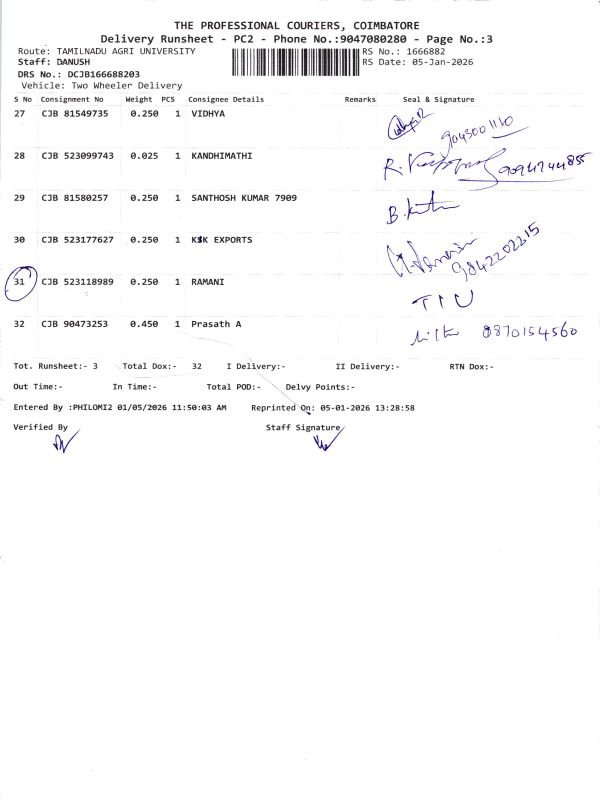 THE PROFESSIONAL COURIERS, COIMBATORE
Delivery Runsheet - PC2 - Phone No.:9047080280 - Page No.:3
Route: TAMILNADU AGRI UNIVERSITY RS No.: 1666882
Staff: DANUSH RS Date: 05-Jan-2026
DRS No.: DCJB166688203
Vehicle: Two Wheeler Delivery
S No Consignment No Weight PCS Consignee Details Remarks Seal & Signature
27 CJB 81549735 0.250 1 VIDHYA
9043001110
28 CJB 523099743 0.025 1 KANDHIMATHI
R. 9094744855
29 CJB 81580257 0.250 1 SANTHOSH KUMAR 7909
B.
30 CJB 523177627 0.250 1 KSK EXPORTS
9842202215
31 CJB 523118989 0.250 1 RAMANI
TIU
32 CJB 90473253 0.450 1 Prasath A 8870154560
Tot. Runsheet:- 3 Total Dox:- 32 I Delivery:- II Delivery:- RTN Dox:-
Out Time:- In Time:- Total POD:- Delvy Points:-
Entered By :PHILOMI2 01/05/2026 11:50:03 AM Reprinted On: 05-01-2026 13:28:58
Verified By Staff Signature